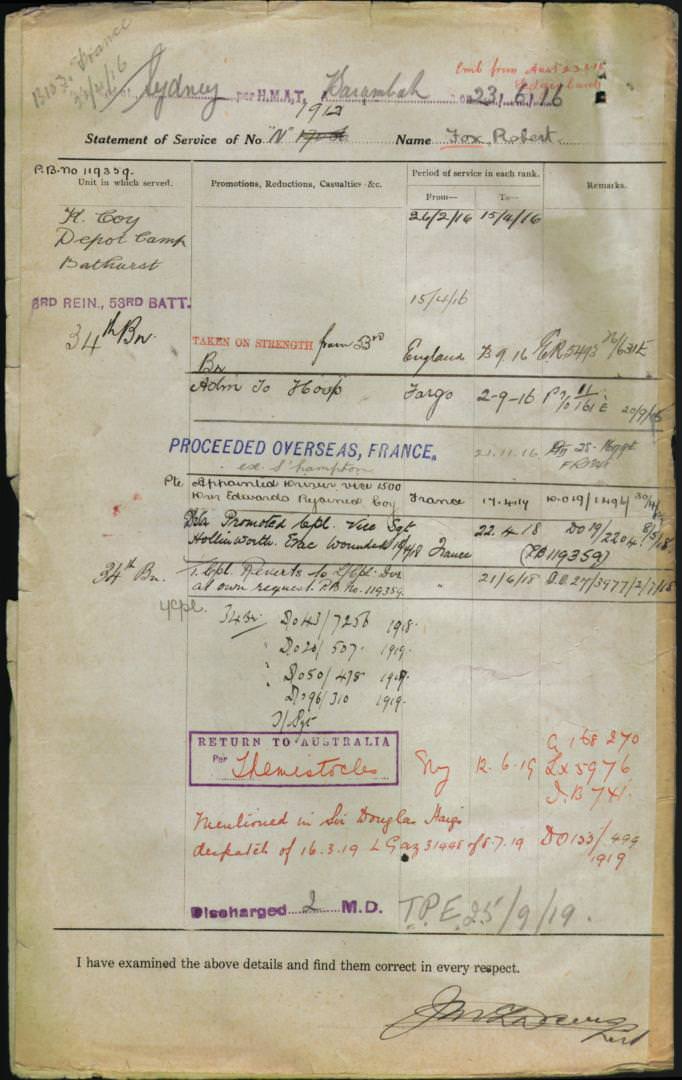 B103. France
22/4/16
Sydney per H.M.A.T. Barambah on 23.6.16
Emb from Aust 23.6.16
1912
Statement of Service of No "N" Name Fox, Robert.
P.B. No 119359.
Unit in which served.
Promotions, Reductions, Casualties &c.
Period of service in each rank.
From—
To—
Remarks.
K. Coy 26/2/16 15/4/16
Depot Camp
Bathurst
3RD REIN., 53RD BATT. 15/4/16
34th Bn. TAKEN ON STRENGTH from 53rd England 9.16
Bn
Adm To Hosp Fargo 2-9-16 20/9/16
PROCEEDED OVERSEAS, FRANCE. 21.11.16
ex S'hampton
Pte Appointed Driver vice 1500
Dvr Edwards Rejoined Coy France 17.4.17
Promoted Cpl. Vice Sgt 22.4.18 DO 19/2204 8/5/18
Hollinworth. Evac Wounded France (PB 119359)
34th Bn. T/Cpl. Reverts to L/Cpl. Dvr " 21/6/18 D.O. 27/3977 2/7/18
at own request. P.B. No. 119359.
34Bn D.O 43/7256 1918.
" D.O 20/507. 1919.
" D.O 50/478 1919.
D.O 96/310 1919.
T/Sgt
RETURN TO AUSTRALIA
Per Themistocles Eng 12.6.19 A 168 270
Lx 5976
D.B 741.
Mentioned in Sir Douglas Haigs
despatch of 16.3.19 L Gaz 31448 of 8.7.19 DO 133/499
1919
Discharged 2 M.D. T.P.E. 25/9/19.
I have examined the above details and find them correct in every respect.